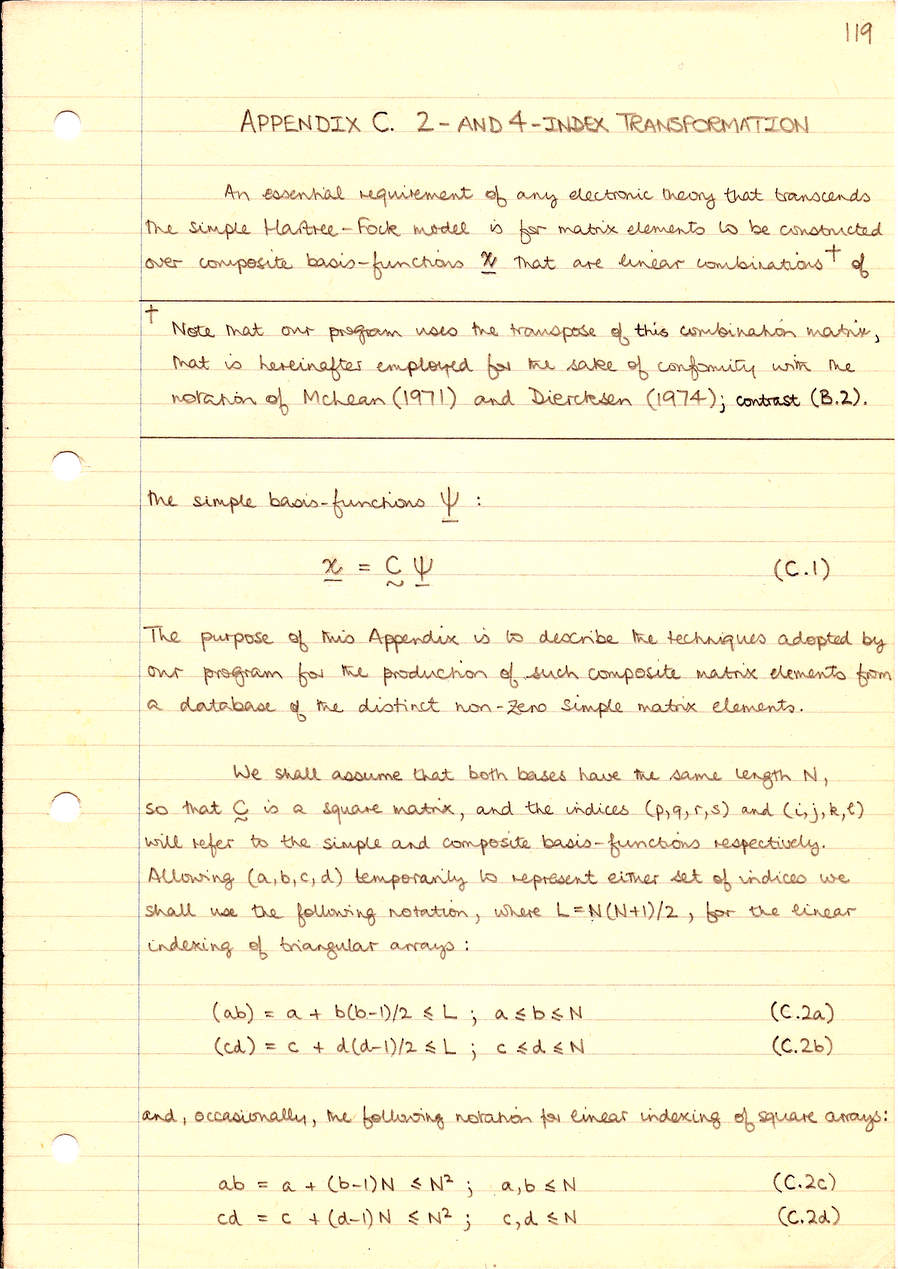 119
APPENDIX C. 2- AND 4-INDEX TRANSFORMATION
An essential requirement of any electronic theory that transcends
the simple Hartree-Fock model is for matrix elements to be constructed
over composite basis-functions χ that are linear combinations† of
† Note that our program uses the transpose of this combination matrix,
that is hereinafter employed for the sake of conformity with the
notation of McLean (1971) and Diercksen (1974); contrast (B.2).
the simple basis-functions ψ :
χ = C ψ (C.1)
The purpose of this Appendix is to describe the techniques adopted by
our program for the production of such composite matrix elements from
a database of the distinct non-zero simple matrix elements.
We shall assume that both bases have the same length N,
so that C is a square matrix, and the indices (p,q,r,s) and (i,j,k,l)
will refer to the simple and composite basis-functions respectively.
Allowing (a,b,c,d) temporarily to represent either set of indices we
shall use the following notation, where L=N(N+1)/2, for the linear
indexing of triangular arrays :
(ab) = a + b(b-1)/2 ≤ L ; a≤b≤N (C.2a)
(cd) = c + d(d-1)/2 ≤ L ; c≤d≤N (C.2b)
and, occasionally, the following notation for linear indexing of square arrays:
ab = a + (b-1)N ≤ N² ; a,b ≤ N (C.2c)
cd = c + (d-1)N ≤ N² ; c,d ≤ N (C.2d)